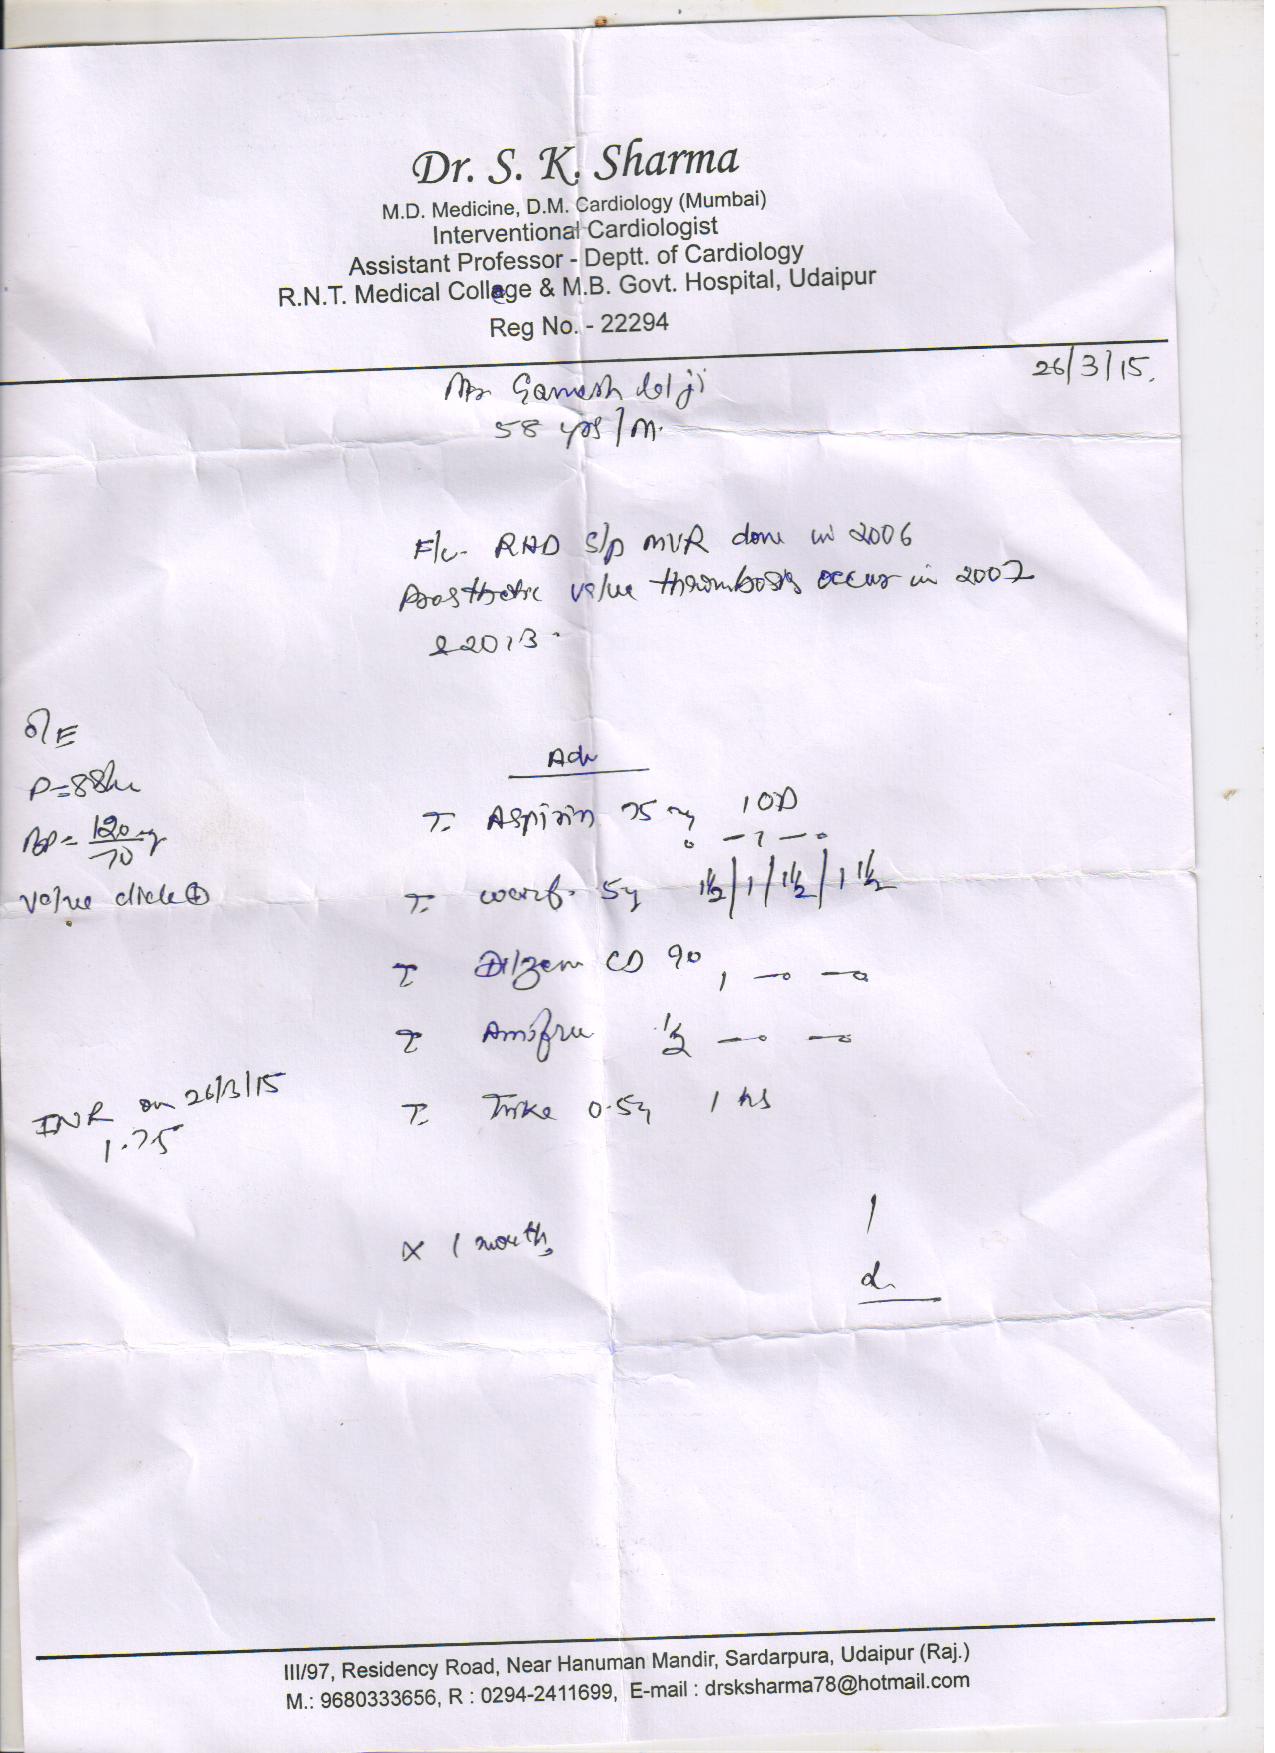 Dr. S. K. Sharma
M.D. Medicine, D.M. Cardiology (Mumbai)
Interventional Cardiologist
Assistant Professor - Deptt. of Cardiology
R.N.T. Medical College & M.B. Govt. Hospital, Udaipur
Reg No. - 22294
26/3/15.
Mr Ganesh lal ji
58 yrs/M.
F/c RHD S/p MVR done in 2006
Prosthetic valve thrombosis occur in 2007
& 2013.
O/E
Adv
P=88
T. Aspirin 75 mg 1 OD
BP = 120/70
0 - 1 - 0
valve click +
T. warf. 5mg 1½/1/1½/1 1½
T Dilzem CD 90 1 - 0 - 0
T Amifru ½ - 0 - 0
INR on 26/3/15
1.75
T. 0.5mg 1 hs
x 1 month
III/97, Residency Road, Near Hanuman Mandir, Sardarpura, Udaipur (Raj.)
M.: 9680333656, R : 0294-2411699, E-mail : drsksharma78@hotmail.com